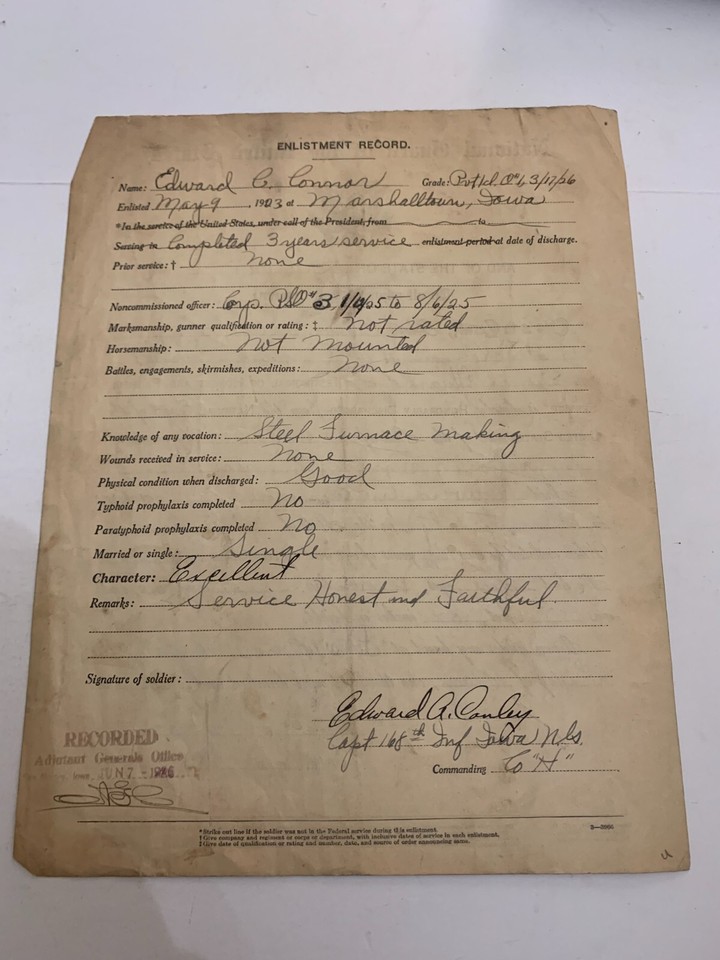 ENLISTMENT RECORD.
Name: Edward C. Connor Grade: Pvt 1cl. O#1, 3/17/26
Enlisted May 9, 1923 at Marshalltown, Iowa
*In the service of the United States, under call of the President, from to
Serving in Completed 3 years service enlistment period at date of discharge.
Prior service: † None
Noncommissioned officer: Corp. #3 to 8/6/25
Marksmanship, gunner qualification or rating: ‡ Not rated
Horsemanship: Not Mounted
Battles, engagements, skirmishes, expeditions: None
Knowledge of any vocation: Steel Furnace Making
Wounds received in service: None
Physical condition when discharged: Good
Typhoid prophylaxis completed No
Paratyphoid prophylaxis completed No
Married or single: Single
Character: Excellent
Remarks: Service Honest and Faithful.
Signature of soldier:
Edward A. Conley
Capt 168th Inf Iowa N.G.
Commanding Co "H"
RECORDED
Adjutant Generals Office
JUN 7 - 1926
*Strike out line if the soldier was not in the Federal service during this enlistment.
†Give company and regiment or corps or department, with inclusive dates of service in each enlistment.
‡Give date of qualification or rating and number, date, and source of order announcing same.